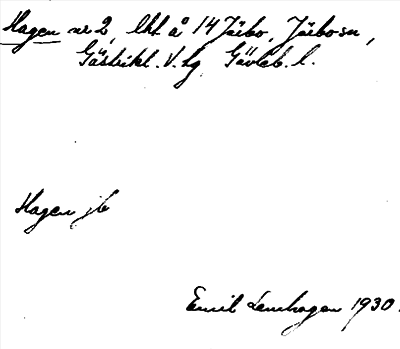 Hagen nr 2, lht å 14 Järbo, Järbo sn,
Gästrikl. V. tg Gävleb. l.
Hagen jb
Emil Lennhagen 1930.